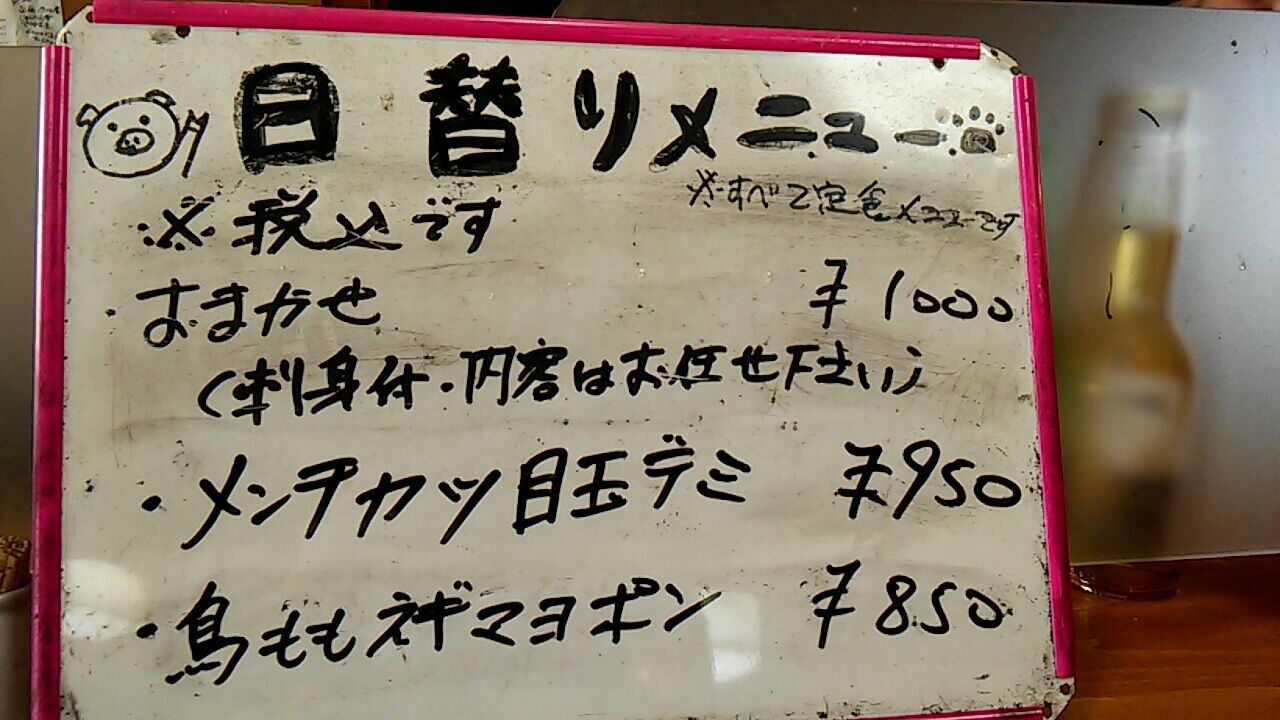 日替りメニュー
※すべて定食メニューです
※税込です
おまかせ ¥1000
(刺身付・内容はお任せ下さい)
・メンチカツ目玉デミ ¥950
・鳥ももネギマヨポン ¥850